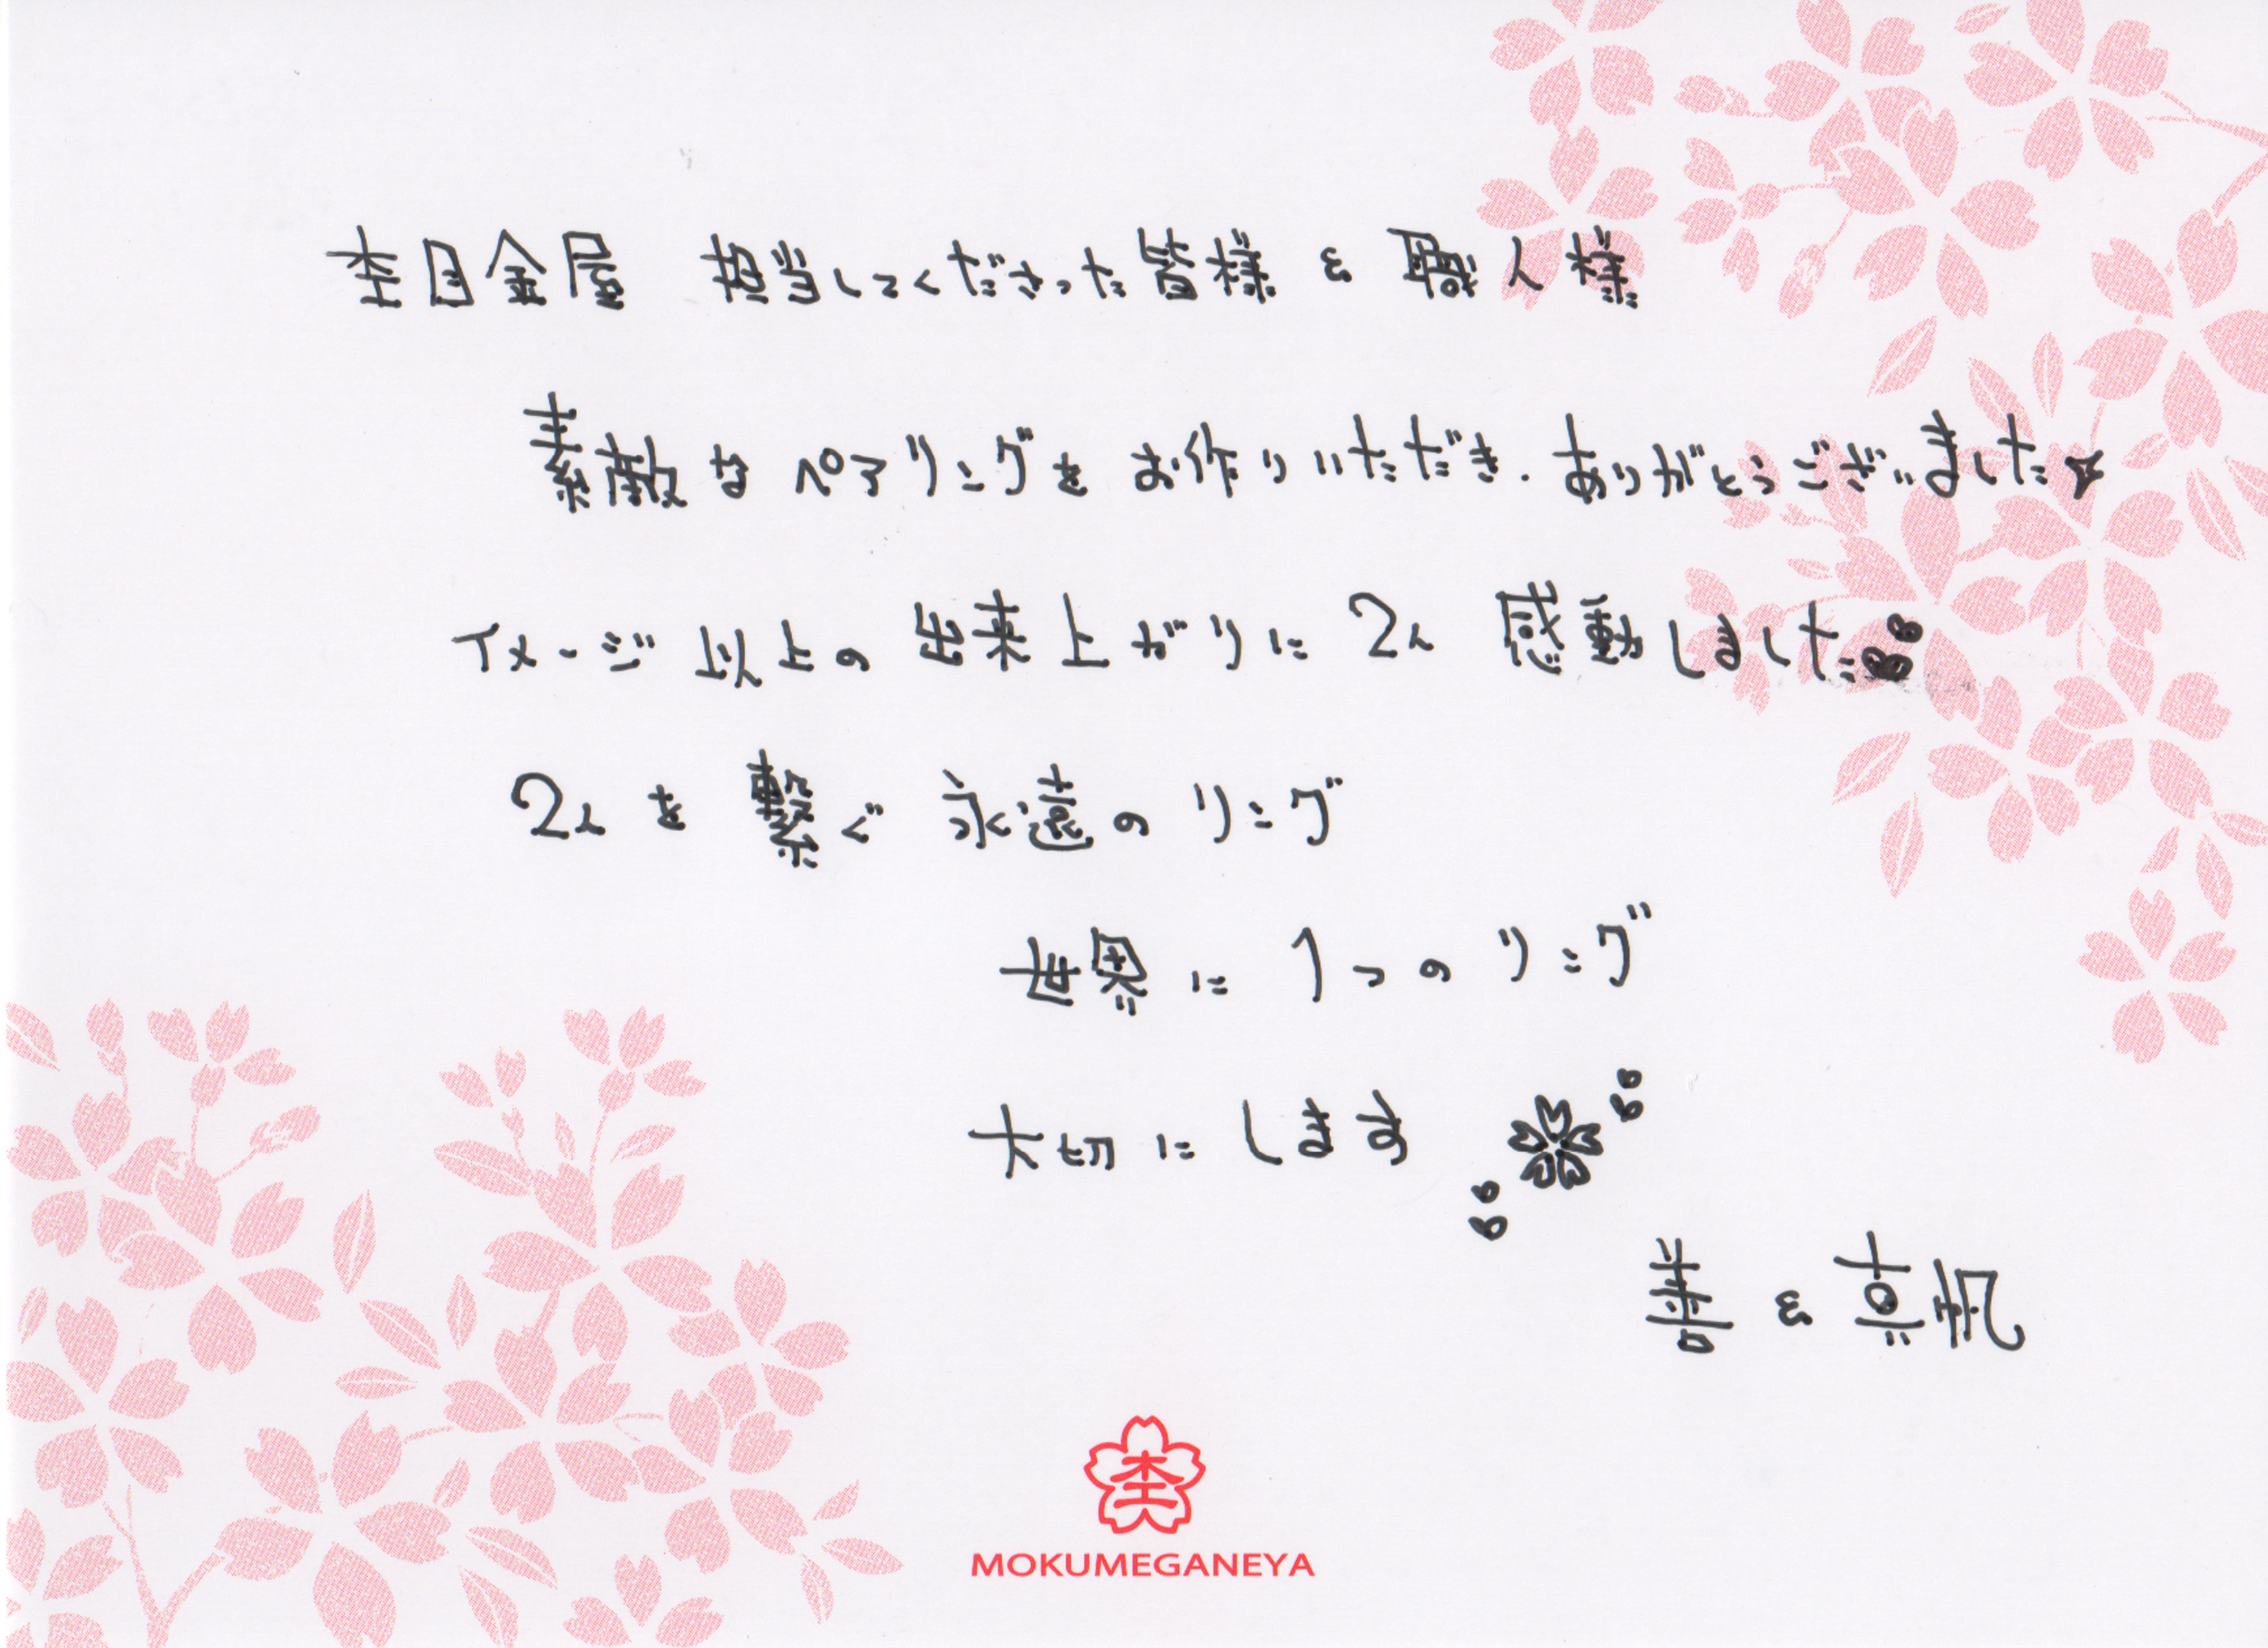 杢目金屋 担当してくださった皆様 & 職人様
素敵なペアリングをお作りいただき、ありがとうございました☆
イメージ以上の出来上がりに2人 感動しました
2人を繋ぐ永遠のリング
世界に1つのリング
大切にします
善 & 真帆
杢
MOKUMEGANEYA